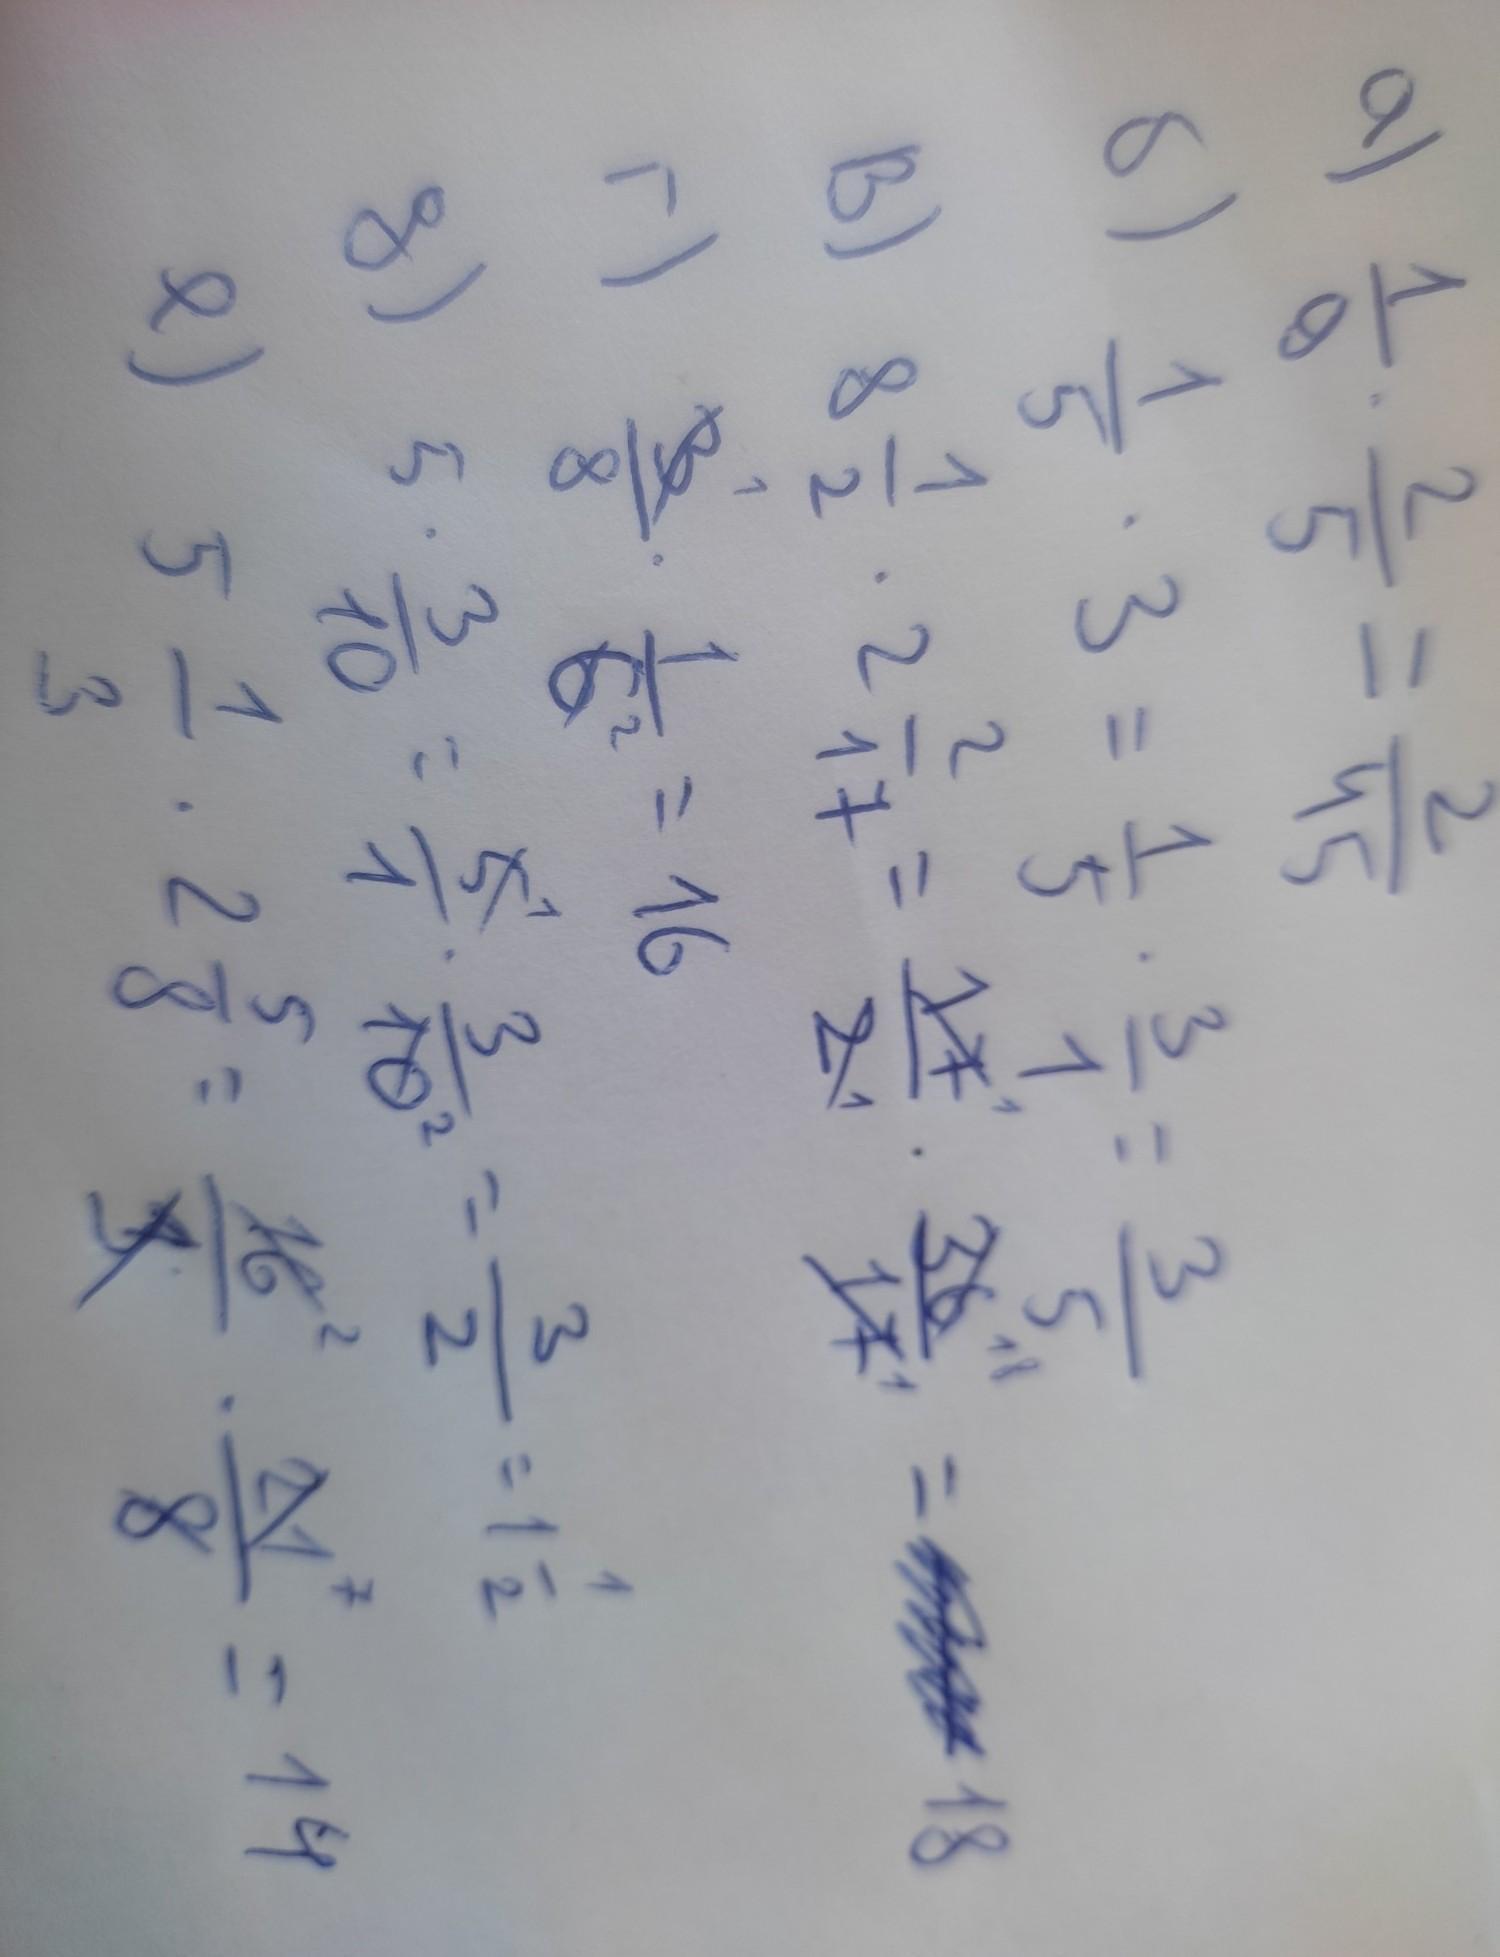 а) 1/9 · 2/5 = 2/45
б) 1/5 · 3 = 1/5 · 3/1 = 3/5
в) 8 1/2 · 2 2/17 = 17/2 · 36/17 = 18
г) 3/8 · 1/6 = 16
д) 5 · 3/10 = 5/1 · 3/10 = 3/2 = 1 1/2
е) 5 1/3 · 2 5/8 = 16/3 · 21/8 = 14